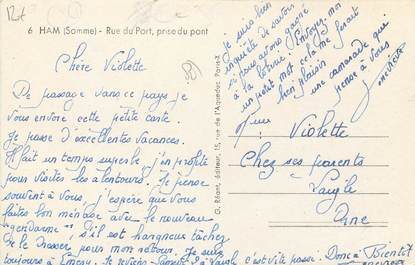 6 HAM (Somme) - Rue du Port, prise du pont
Chère Violette
De passage dans ce pays je
vous envoie cette petite carte.
Je passe d'excellentes vacances.
Il fait un temps superbe j'en profite
pour visiter les alentours. Je pense
souvent à vous, j'espère que vous
faites bon ménage avec le nouveau
"gendarme" s'il est hangneux tâchez
de le dresser pour mon retour. Je suis
toujours à
c'est vite passé. Donc à Bientôt
je suis bien
inquiète de savoir
si nous avons gagné
à la loterie. Envoyez-moi
un petit mot cela me ferait
bien plaisir
une camarade qui
pense à vous
G. Réant, éditeur, 15, rue de l'Aqueduc, Paris-X
Violette
Chez ses parents
Laigle
Orne